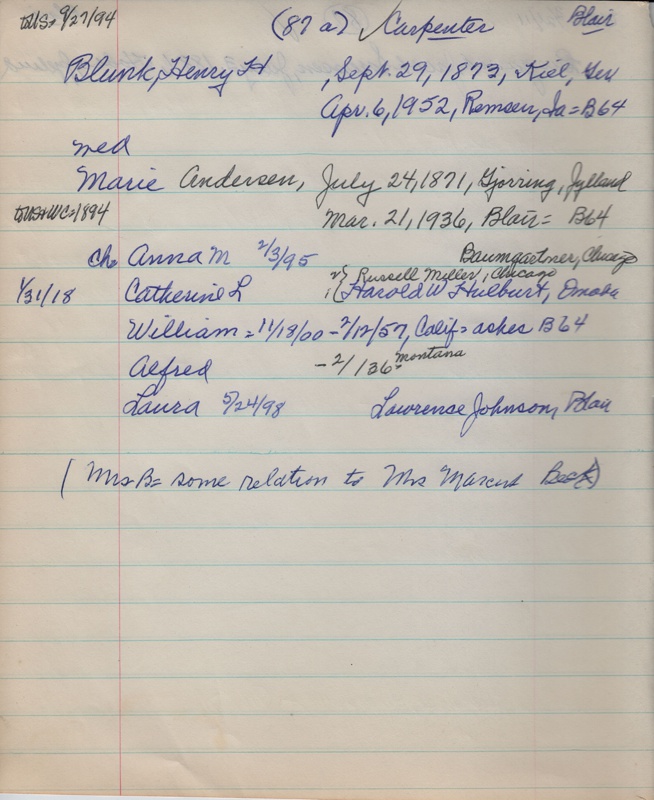 toUS= 9/27/94 (87 a) Carpenter Blair
Blunk, Henry H , Sept. 29, 1873, Kiel, Ger
Apr. 6, 1952, Remsen, Ia = B64
med
Marie Andersen, July 24, 1871, Hjorring, Jylland
toUS+WC=1894 Mar. 21, 1936, Blair = B64
ch= Anna M 2/3/95 Baumgartner, Chicago
2) Russell Miller, Chicago
1/31/18 Catherine L 1) Harold W Hulburt, Omaha
William = 11/18/00 - 2/12/57, Calif = ashes B64
Alfred - 2/ /36= Montana
Laura 5/24/98 Lawrence Johnson, Blair
(Mrs B = some relation to Mrs Marcus Beck)